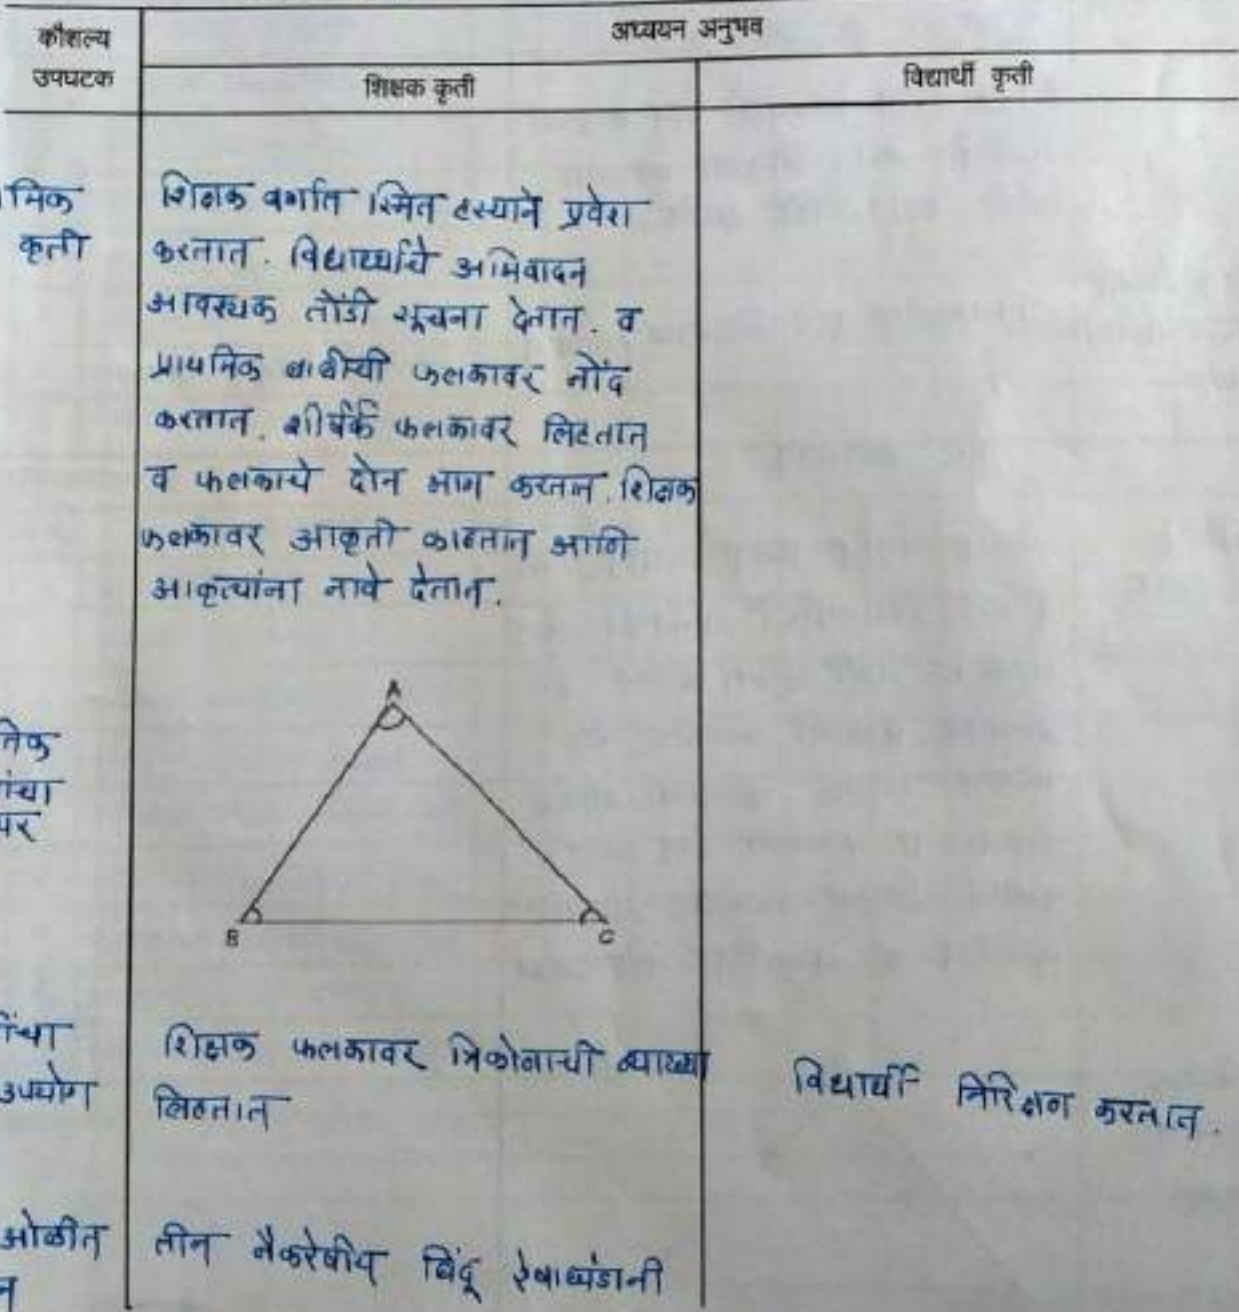 कौशल्य
उपघटक
अध्ययन अनुभव
शिक्षक कृती
विद्यार्थी कृती
मिक
कृती
शिक्षक वर्गात स्मित हस्याने प्रवेश
करतात. विद्यार्थ्यांचे अभिवादन
आवश्यक तोंडी सूचना देतात. व
प्राथमिक बाबींची फलकावर नोंद
करतात. शीर्षक फलकावर लिहतात
व फलकाचे दोन भाग करतात. शिक्षक
फलकावर आकृती काढतात आणि
आकृत्यांना नावे देतात.
A
B
C
तिक
ांचा
पर
ींचा
उपयोग
शिक्षक फलकावर त्रिकोनाची व्याख्या
लिहतात
विद्यार्थी निरिक्षण करतात.
ओळीत
न
तीन नैकरेषीय बिंदू रेषाखंडानी